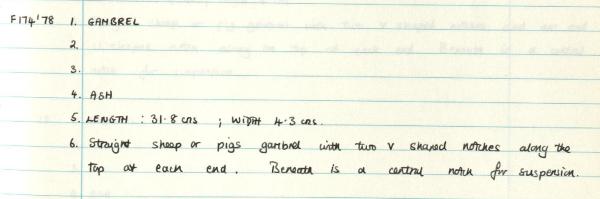 F174'78 1. GAMBREL
2.
3.
4. ASH
5. LENGTH : 31.8 cms ; WIDTH 4.3 cms.
6. Straight sheep or pigs gambrel with two v shaped notches along the
top at each end. Beneath is a central notch for suspension.